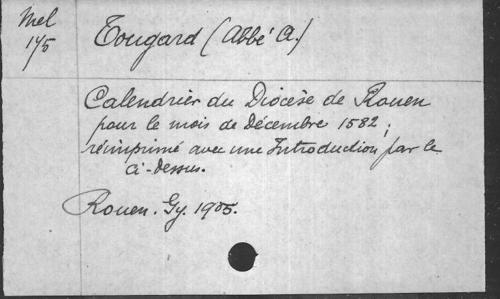 Mel
175
Tougard (Abbé A.)
Calendrier du Diocèse de Rouen
pour le mois de Décembre 1582;
réimprimé avec une Introduction par le
ci-dessus.
Rouen. Gy. 1905.